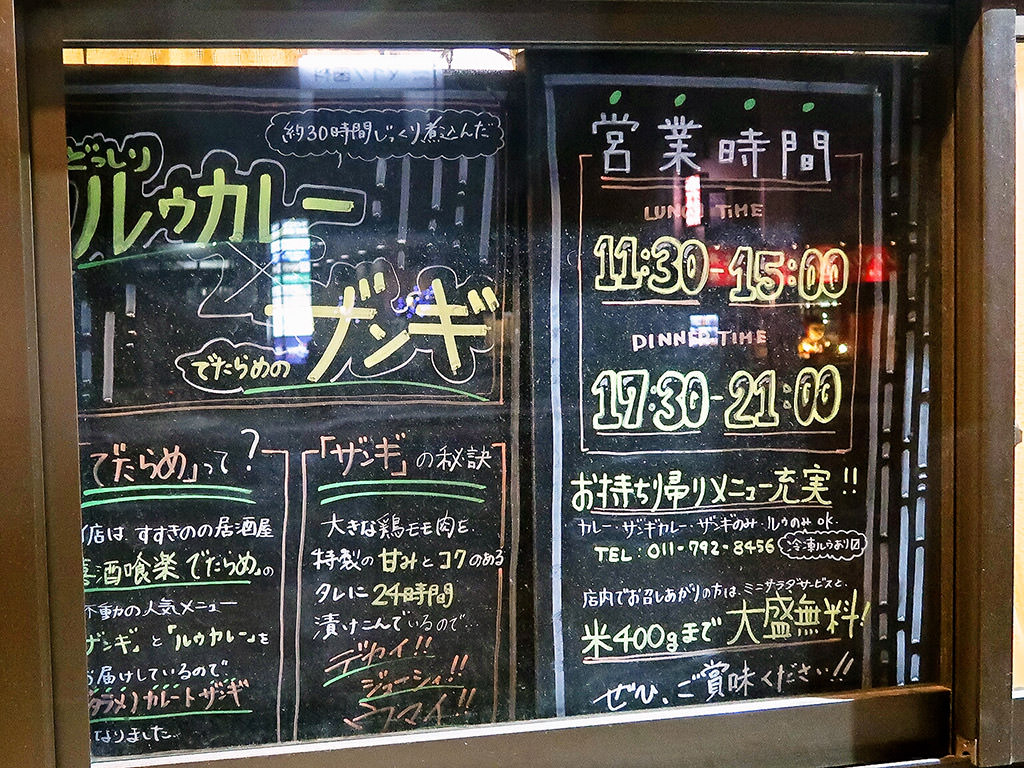 約30時間じっくり煮込んだ
どっしり
ルゥカレー
×
でたらめの
ザンギ
「でたらめ」って?
店は すすきのの居酒屋
喜酒喰楽 でたらめ」の
不動の人気メニュー
ザンギ」と「ルゥカレー」を
お届けしているので、
タラメノカレートザンギ
なりました…
「ザンギ」の秘訣
大きな鶏モモ肉を
特製の 甘みとコクのある
タレに 24時間
漬けこんでいるので…
デカイ!!
ジューシィ!!
ウマイ!!
営業時間
LUNCH TIME
11:30-15:00
DINNER TIME
17:30-21:00
お持ち帰りメニュー充実!!
カレー・ザンギカレー・ザンギのみ・ルゥのみ ok.
TEL:011-792-8456
冷凍ルゥあり〼
店内でお召しあがりの方は、ミニサラダサービスと、
米400gまで 大盛無料!
ぜひ、ご賞味ください!!